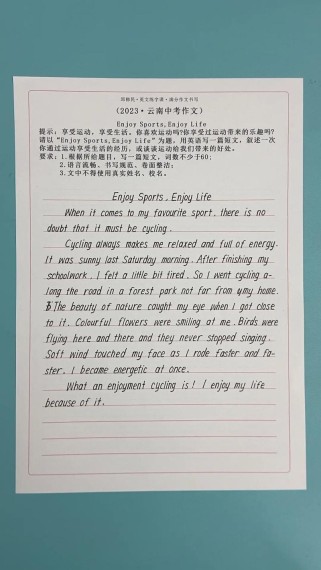 (2023·云南中考作文)
Enjoy Sports,Enjoy Life
提示:享受运动,享受生活。你喜欢运动吗?你享受过运动带来的乐趣吗?
请以“Enjoy Sports,Enjoy Life”为题,用英语写一篇短文,叙述一次
你通过运动享受生活的经历,或谈谈运动给我们带来的好处。
要求:1.根据所给题目,写一篇短文,词数不少于60;
2.语言流畅、书写规范、卷面整洁;
3.文中不得使用真实姓名、校名。
Enjoy Sports, Enjoy Life
When it comes to my favourite sport, there is no
doubt that it must be cycling.
Cycling always makes me relaxed and full of energy.
It was sunny last Saturday morning. After finishing my
schoolwork, I felt a little bit tired. So I went cycling a-
long the road in a forest park not far from my home.
The beauty of nature caught my eye when I got close
to it. Colourful flowers were smiling at me. Birds were
flying here and there and they never stopped singing.
Soft wind touched my face as I rode faster and fa-
ster. I became energetic at once.
What an enjoyment cycling is! I enjoy my life
because of it.